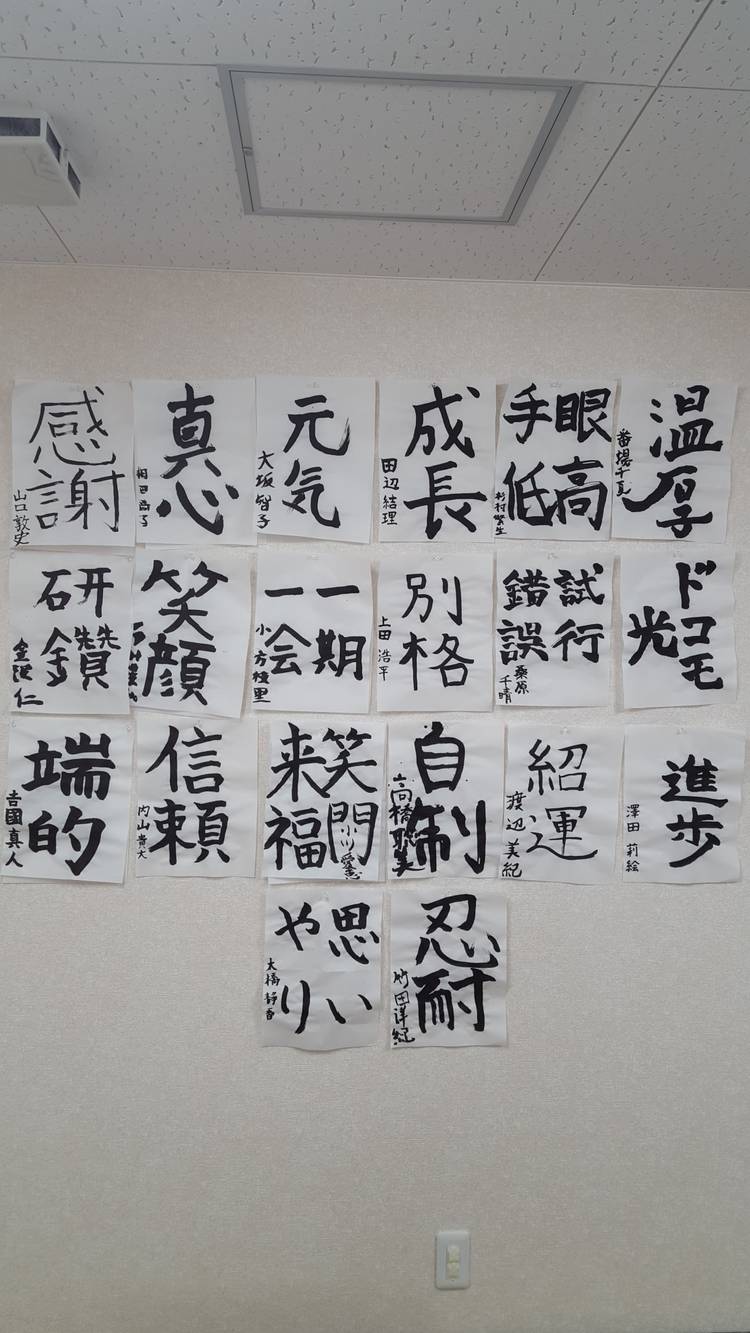 感謝
山口敦史
真心
元気
大坂智子
成長
田辺結理
眼高
手低
杉村繁生
温厚
番場千夏
研鑽
仁
笑顔
一期
一会
別格
上田 浩平
試行
錯誤
桑原
千晴
ドコモ
光
端的
吉國真人
信頼
内山貴大
笑門
来福
小川愛恵
自制
高橋聡美
紹運
渡辺美紀
進歩
澤田 莉絵
思い
やり
大橋静香
忍耐
竹田洋紀